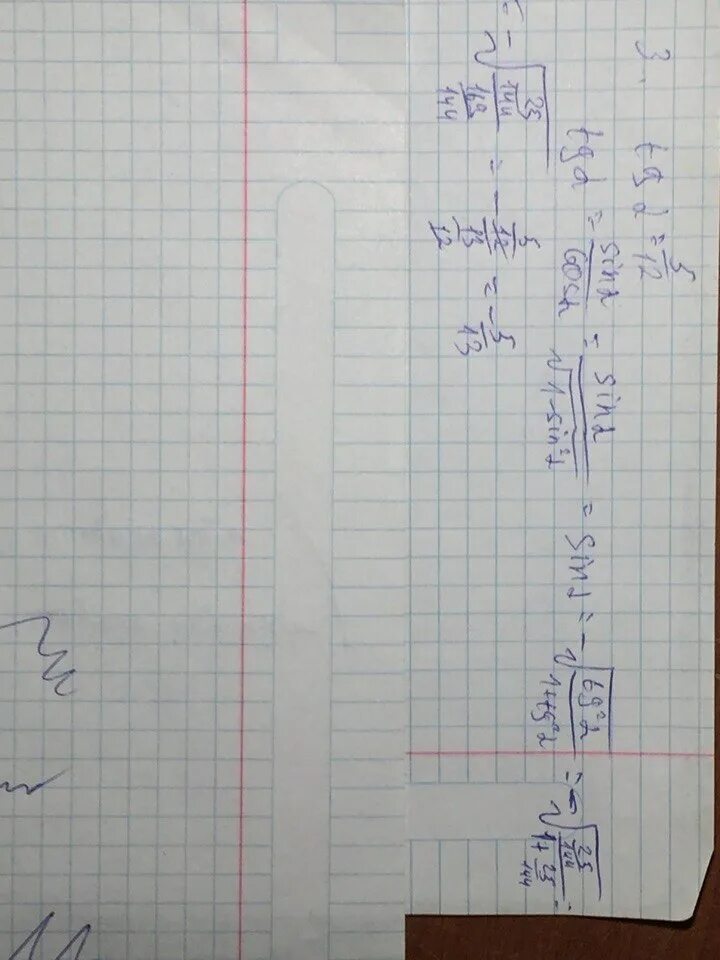 3. tg α = 5/12
tg α = sin α / cos α = sin α / √(1 - sin² α) = sin α = - √(tg² α / (1 + tg² α)) = - √((25/144) / (1 + 25/144)) =
= - √((25/144) / (169/144)) = - (5/12) / (13/12) = - 5/13